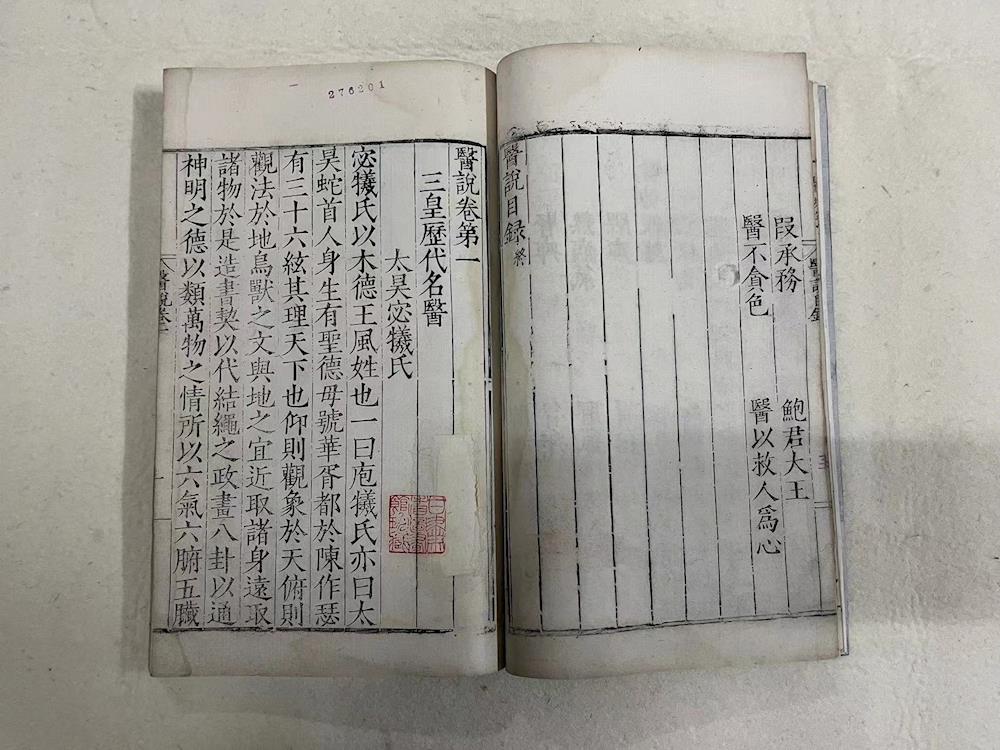 段承務 鮑君大王
醫不貪色 醫以救人爲心
醫說目録終
276201
醫說卷第一
三皇歷代名醫
太昊宓犧氏
宓犧氏以木德王風姓也一曰庖犧氏亦曰太
昊蛇首人身生有聖德母號華胥都於陳作瑟
有三十六絃其理天下也仰則觀象於天俯則
觀法於地鳥獸之文與地之宜近取諸身遠取
諸物於是造書契以代結繩之政畫八卦以通
神明之德以類萬物之情所以六氣六腑五臟